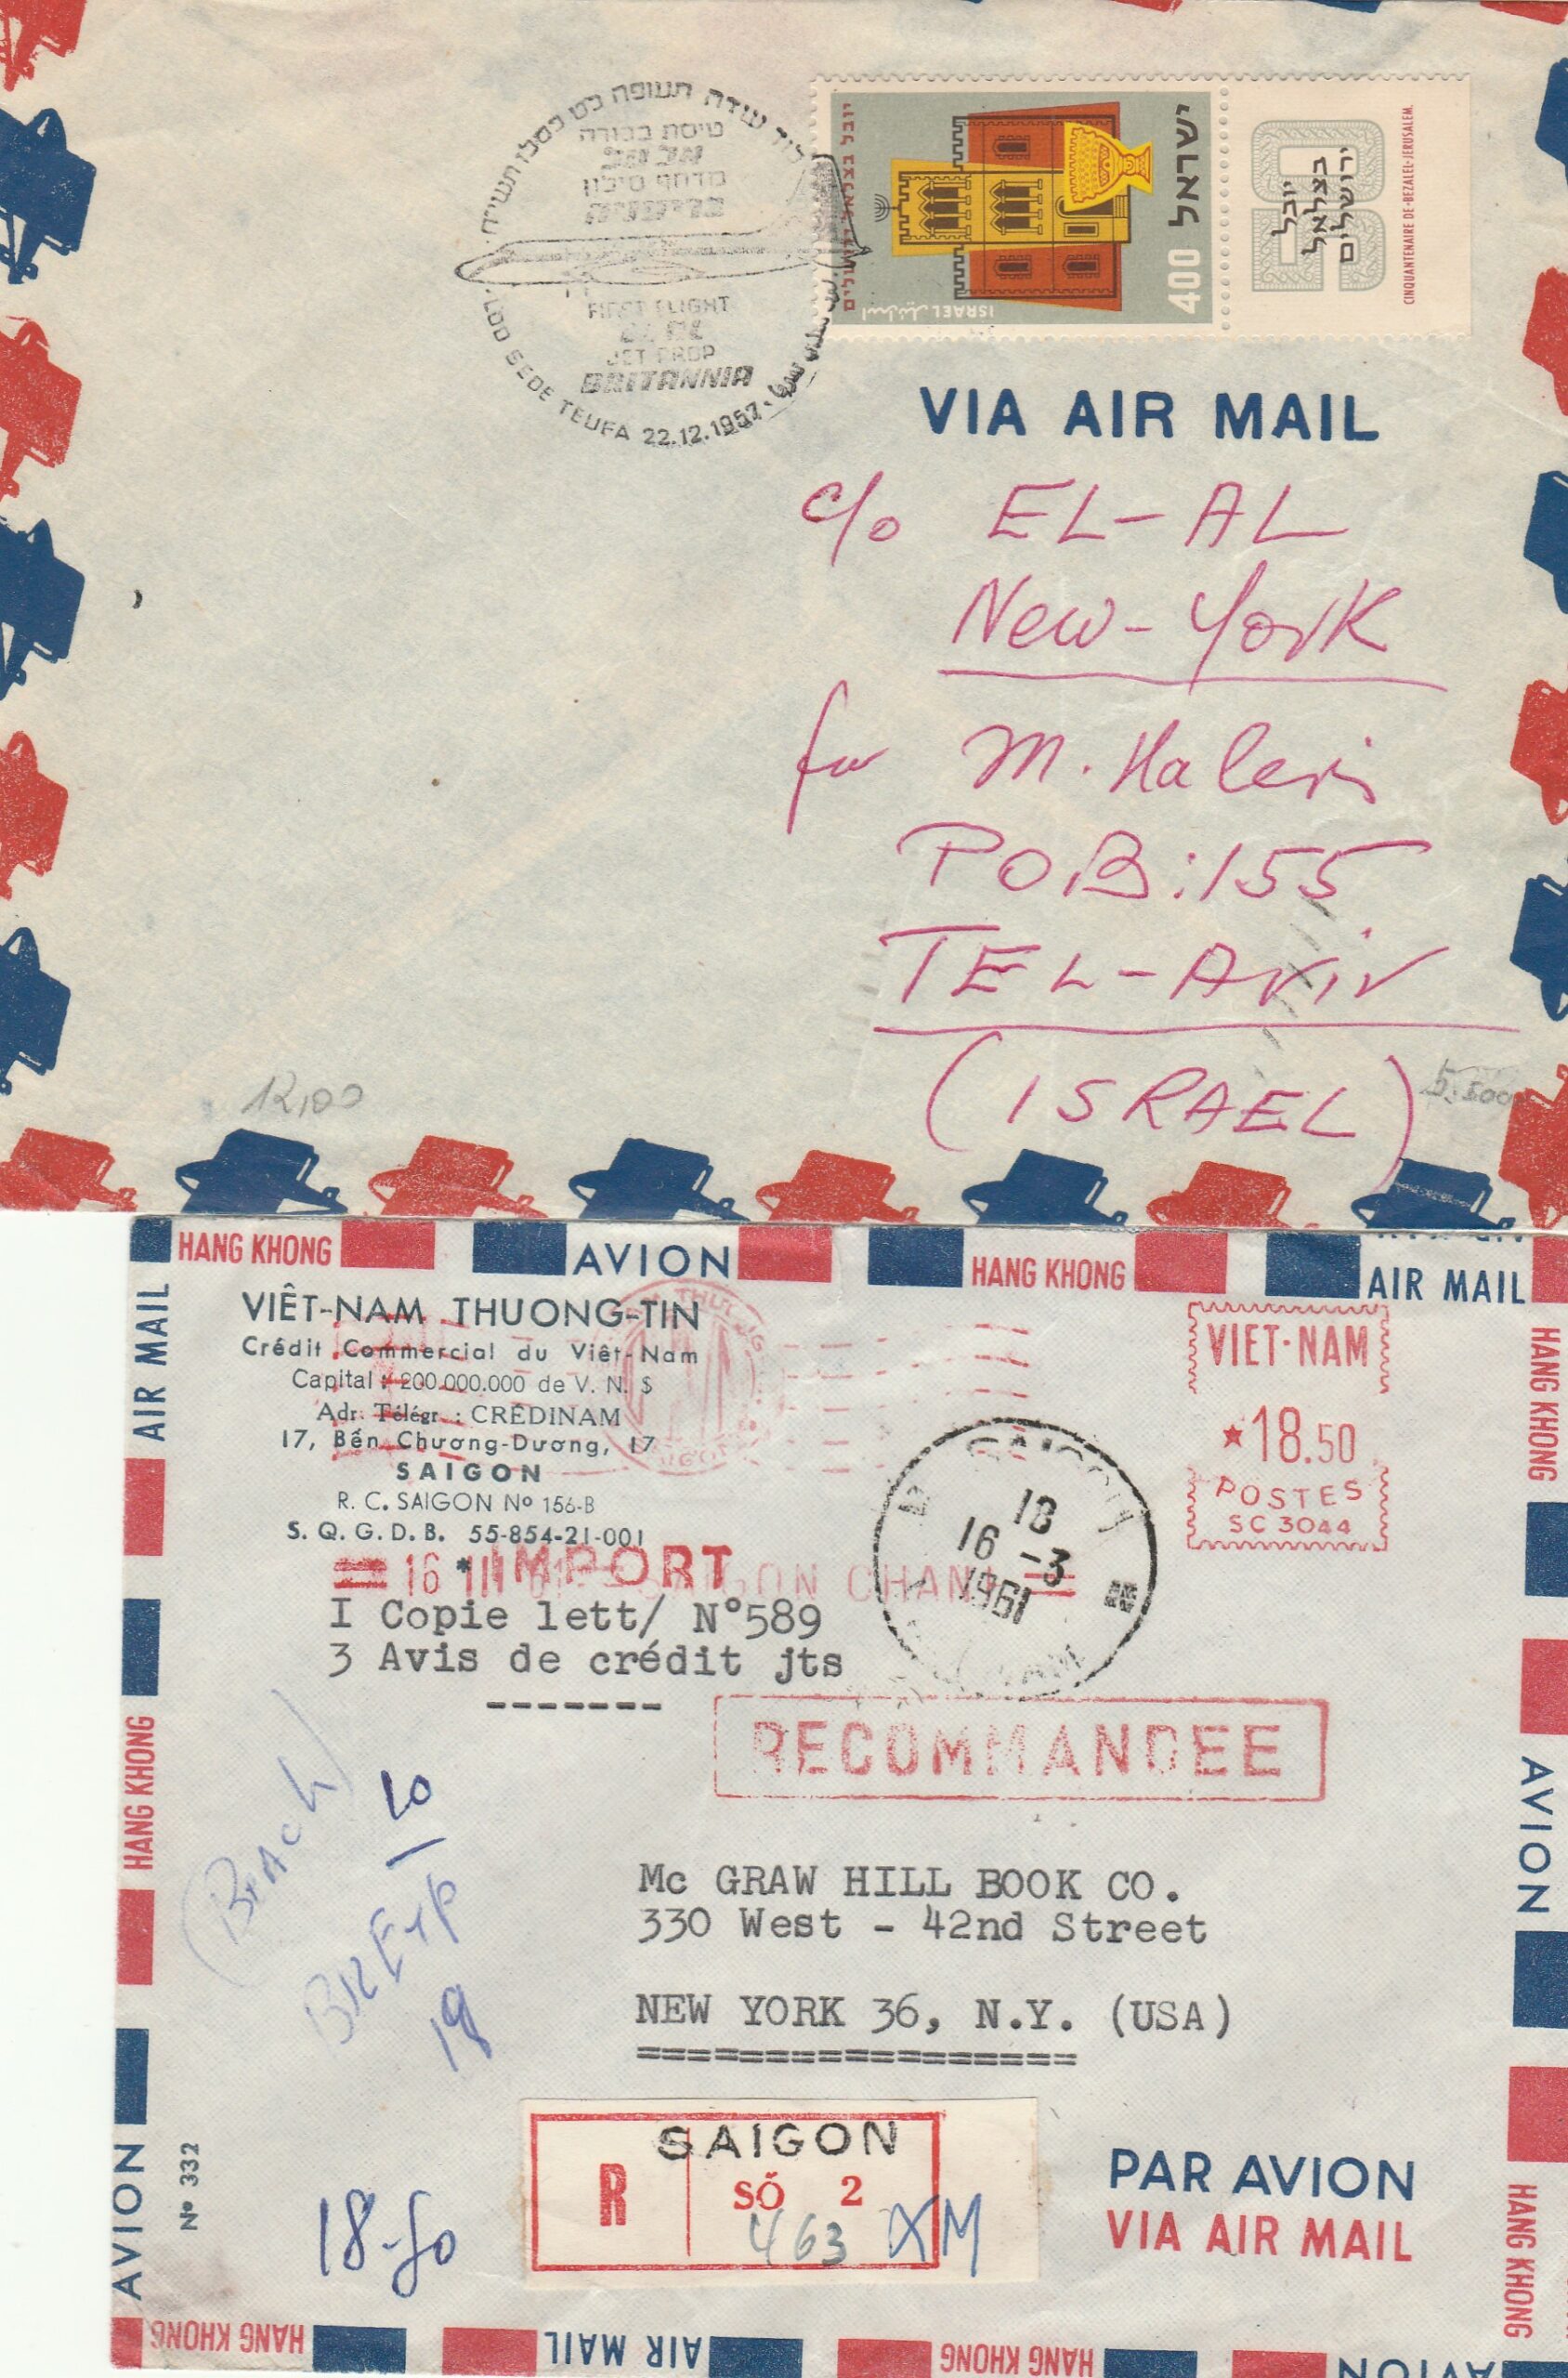 לוד שדה תעופה כט כסלו תשי״ח
טיסת בכורה
אל על
מדחף סילון
בריטניה
FIRST FLIGHT
EL AL
JET PROP
BRITANNIA
LOD SEDE TEUFA 22.12.1957
יובל בצלאל ירושלים
ישראל
400
ISRAEL اسرائيل
50
יובל
בצלאל
ירושלים
CINQUANTENAIRE DE-BEZALEL-JERUSALEM.
VIA AIR MAIL
c/o EL-AL
New-York
for M. Halevi
POB:155
TEL-AVIV
(ISRAEL)
12,00
5.500
HANG KHONG
AVION
HANG KHONG
AIR MAIL
VIÊT-NAM THUONG-TIN
Crédit Commercial du Viêt-Nam
Capital : 200.000.000 de V. N. $
Adr. Télégr. : CRÉDINAM
17, Bến Chương-Dương, 17
SAIGON
R. C. SAIGON Nº 156-B
S. Q. G. D. B. 55-854-21-001
VIET-NAM
★18.50
POSTES
SC 3044
SAIGON
18
16 -3
1961
IMPORT
16 III 61 SAIGON CHANH
I Copie lett/ N°589
3 Avis de crédit jts
-------
RECOMMANDEE
Mc GRAW HILL BOOK CO.
330 West - 42nd Street
NEW YORK 36, N.Y. (USA)
=================
SAIGON
R
SỐ 2
463
XM
18-50
19
Nº 332
PAR AVION
VIA AIR MAIL
AIR MAIL
HANG KHONG
AVION
HANG KHONG
AVION
HANG KHONG
HANG KHONG
AIR MAIL
HANG KHONG
AVION